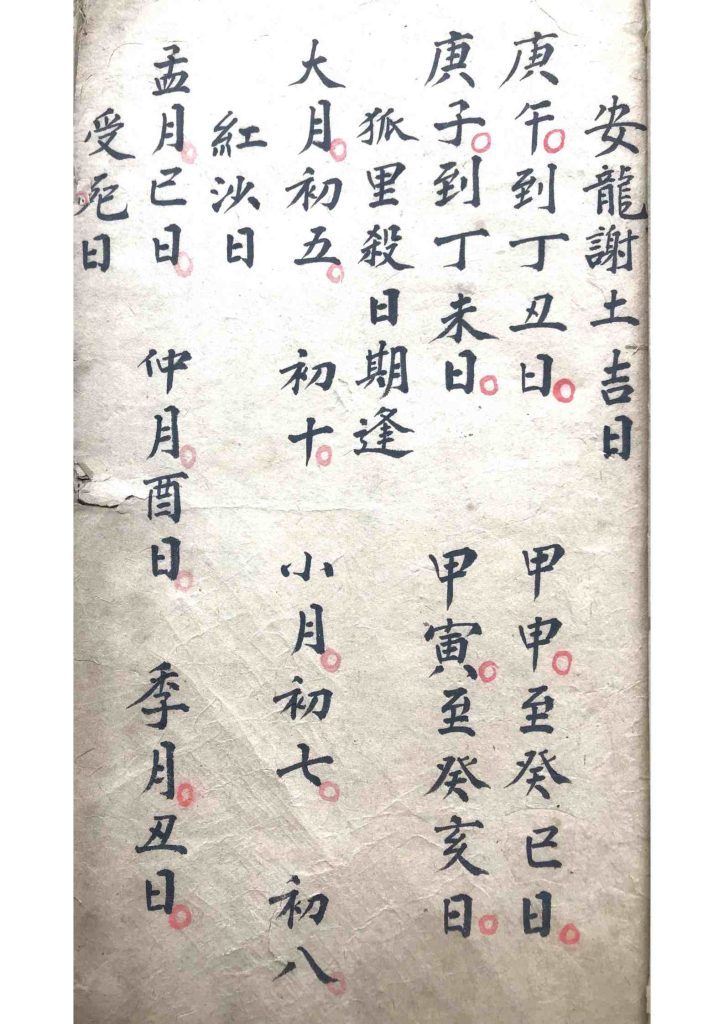 安龍謝土吉日
庚午。到丁丑日。 甲申。至癸巳日。
庚子。到丁未日。 甲寅。至癸亥日。
狐里殺日期逢
大月。初五。 初十。 小月。初七。 初八。
紅沙日
孟月。巳日。 仲月。酉日。 季月。丑日。
受死日